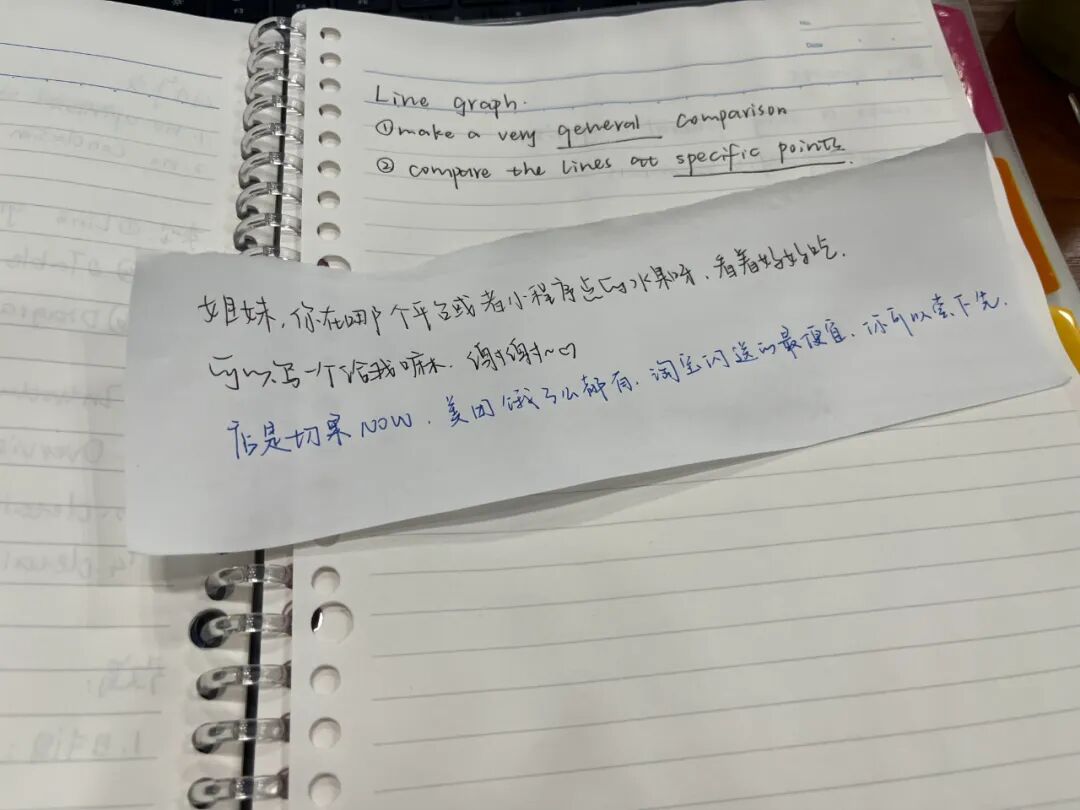 No.
Date
Line graph.
①make a very general comparison
② compare the lines at specific points.
姐妹,你在哪个平台或者小程序点的水果呀,看着好好吃.
可以写一个给我嘛.谢谢~
店是切果NOW.美团饿了么都有.淘宝闪送的最便宜.你可以尝下先.